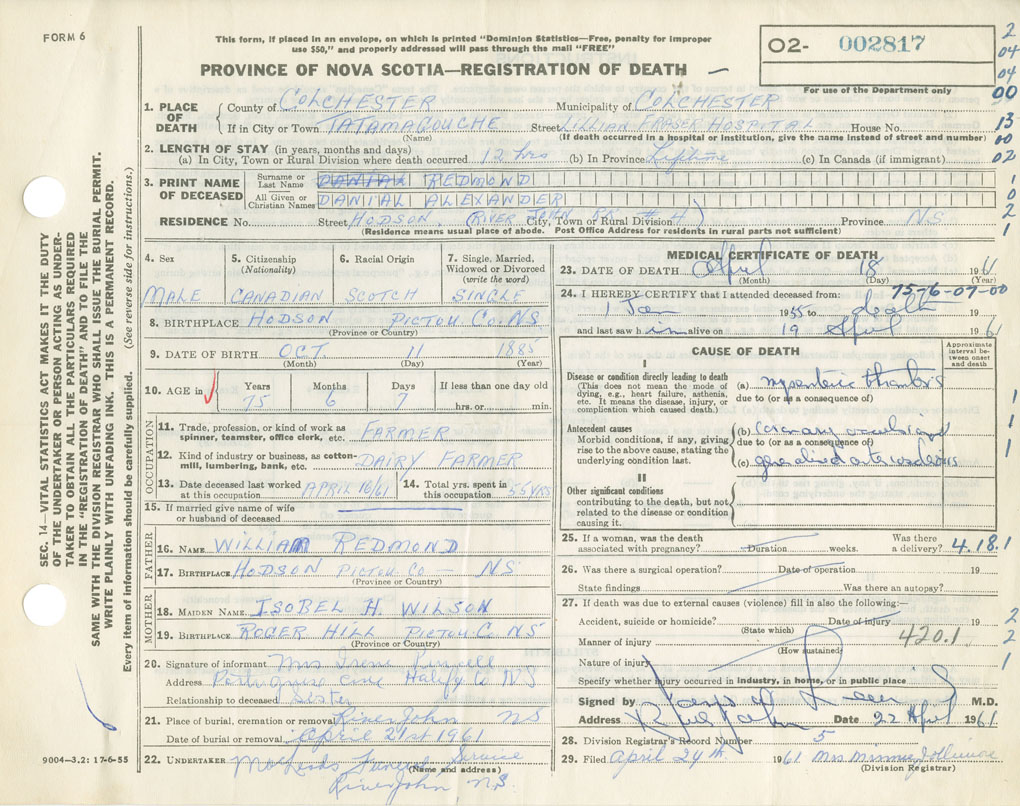 FORM 6
This form, if placed in an envelope, on which is printed "Dominion Statistics—Free, penalty for improper
use $50," and properly addressed will pass through the mail "FREE"
PROVINCE OF NOVA SCOTIA—REGISTRATION OF DEATH
02- 002817
For use of the Department only
2
04
04
00
13
00
02
1
0
2
1
1. PLACE OF DEATH
County of COLCHESTER Municipality of COLCHESTER
If in City or Town TATAMAGOUCHE Street LILLIAN FRASER HOSPITAL House No.
(Name) (If death occurred in a hospital or institution, give the name instead of street and number)
2. LENGTH OF STAY (in years, months and days)
(a) In City, Town or Rural Division where death occurred 12 hrs (b) In Province Lifetime (c) In Canada (if immigrant)
3. PRINT NAME OF DECEASED
Surname or Last Name DANIAL REDMOND
All Given or Christian Names DANIAL ALEXANDER
RESIDENCE No. Street HODSON (RIVER JOHN RR # 4) City, Town or Rural Division Province N.S
(Residence means usual place of abode. Post Office Address for residents in rural parts not sufficient)
4. Sex MALE
5. Citizenship (Nationality) CANADIAN
6. Racial Origin SCOTCH
7. Single, Married, Widowed or Divorced (write the word) SINGLE
8. BIRTHPLACE HODSON PICTOU CO. NS
(Province or Country)
9. DATE OF BIRTH OCT. 11 1885
(Month) (Day) (Year)
10. AGE in Years 75 Months 6 Days 7 If less than one day old hrs. or min.
OCCUPATION
11. Trade, profession, or kind of work as spinner, teamster, office clerk, etc. FARMER
12. Kind of industry or business, as cotton-mill, lumbering, bank, etc. DAIRY FARMER
13. Date deceased last worked at this occupation APRIL 16/61 14. Total yrs. spent in this occupation 55 YRS
15. If married give name of wife or husband of deceased
FATHER
16. NAME WILLIAM REDMOND
17. BIRTHPLACE HODSON PICTOU CO — NS
(Province or Country)
MOTHER
18. MAIDEN NAME ISOBEL H. WILSON
19. BIRTHPLACE ROGER HILL PICTOU C. NS
(Province or Country)
20. Signature of informant Mrs Irene
Address Halifax Co NS
Relationship to deceased Sister
21. Place of burial, cremation or removal River John NS
Date of burial or removal April 21st 1961
22. UNDERTAKER Funeral Service
(Name and address)
River John N.S.
MEDICAL CERTIFICATE OF DEATH
23. DATE OF DEATH April 18 1961
(Month) (Day) (Year)
75-6-07-00
24. I HEREBY CERTIFY that I attended deceased from:
1 Jan 1955 to death 19
and last saw him alive on 19 April 1961
CAUSE OF DEATH
Approximate interval between onset and death
I
Disease or condition directly leading to death
(This does not mean the mode of dying, e.g., heart failure, asthenia, etc. It means the disease, injury, or complication which caused death.)
(a) mesenteric thrombosis
due to (or as a consequence of)
Antecedent causes
Morbid conditions, if any, giving rise to the above cause, stating the underlying condition last.
(b) coronary
due to (or as a consequence of)
(c) generalised arteriosclerosis
II
Other significant conditions
contributing to the death, but not related to the disease or condition causing it.
1
1
1
25. If a woman, was the death associated with pregnancy? Duration weeks. Was there a delivery? 4.18.1
26. Was there a surgical operation? Date of operation 19
State findings Was there an autopsy?
27. If death was due to external causes (violence) fill in also the following:—
Accident, suicide or homicide? Date of injury 19
(State which)
Manner of injury 420.1
(How sustained)
Nature of injury
Specify whether injury occurred in industry, in home, or in public place
2
2
1
Signed by M.D.
Address River John Date 22 April 1961
28. Division Registrar's Record Number 5
29. Filed April 24th 1961 Mrs
(Division Registrar)
SEC. 14—VITAL STATISTICS ACT MAKES IT THE DUTY
OF THE UNDERTAKER OR PERSON ACTING AS UNDER-
TAKER TO OBTAIN ALL THE PARTICULARS REQUIRED
IN THE "REGISTRATION OF DEATH" AND TO FILE THE
SAME WITH THE DIVISION REGISTRAR WHO SHALL ISSUE THE BURIAL PERMIT.
WRITE PLAINLY WITH UNFADING INK. THIS IS A PERMANENT RECORD.
Every item of information should be carefully supplied. (See reverse side for instructions.)
9004—3,2: 17-6-55